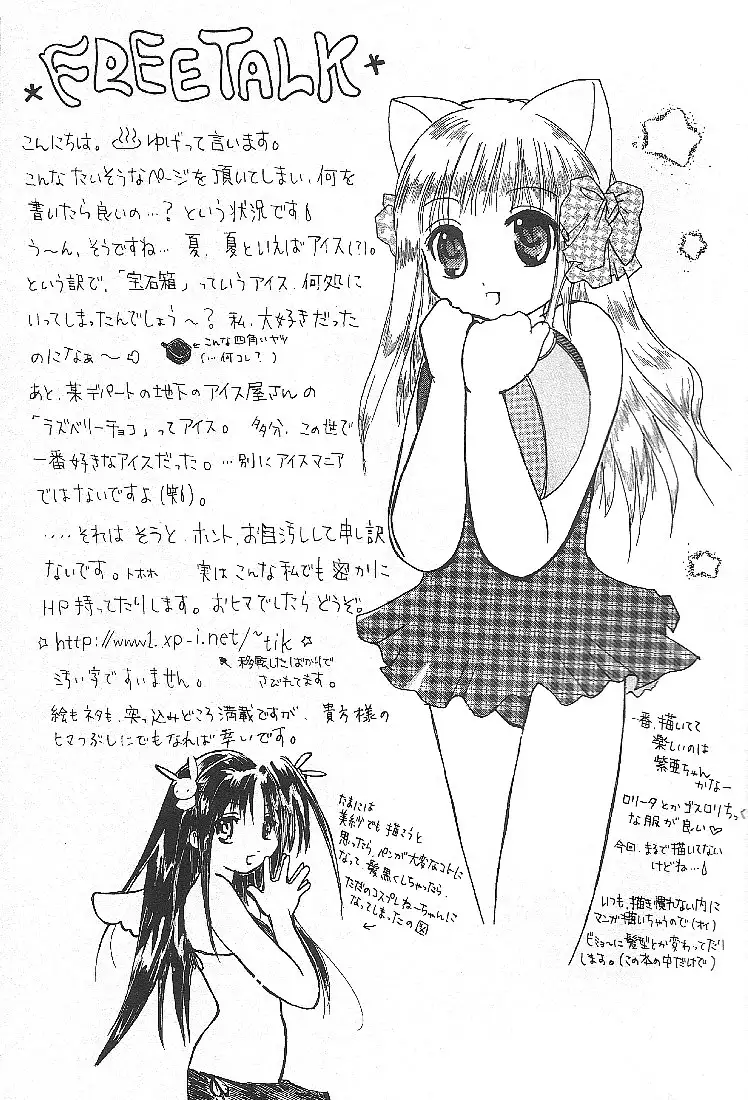 *FREETALK*
こんにちは。♨ゆげって言います。
こんなたいそうなページを頂いてしまい、何を
書いたら良いの…?という状況です
う~ん、そうですね… 夏、夏といえばアイス(?)。
という訳で、「宝石箱」っていうアイス、何処に
いってしまったんでしょう~?私、大好きだった
のになぁ~
←こんな四角いヤツ
(…何コレ?)
あと、某デパートの地下のアイス屋さんの
「ラズベリーチョコ」ってアイス。多分、この世で
一番好きなアイスだった。…別にアイスマニア
ではないですよ(笑)。
‥‥それはそうと、ホント、お目汚しして申し訳
ないです。トホホ 実はこんな私でも密かに
HP持ってたりします。おヒマでしたらどうぞ。
☆http://www1.xp-i.net/~tik☆
★移転したばかりで
さびれてます。
汚い字ですいません。
絵もネタも、突っ込みどころ満載ですが、貴方様の
ヒマつぶしにでもなれば幸いです。
たまには
美紗でも描こうと
思ったら、ペンが大変なコトに
なって、髪黒くしちゃったら、
ただのコスプレねーちゃんに
なってしまったの図
一番、描いてて
楽しいのは
紫亜ちゃん
かなー
ロリータとかゴスロリちっく
な服が良い♡
今回、まるで描いてない
けどね…
いつも、描き慣れない内に
マンガ描いちゃうので(オイ)
ビミョーに髪型とか変わってたり
します。(この本の中だけで)